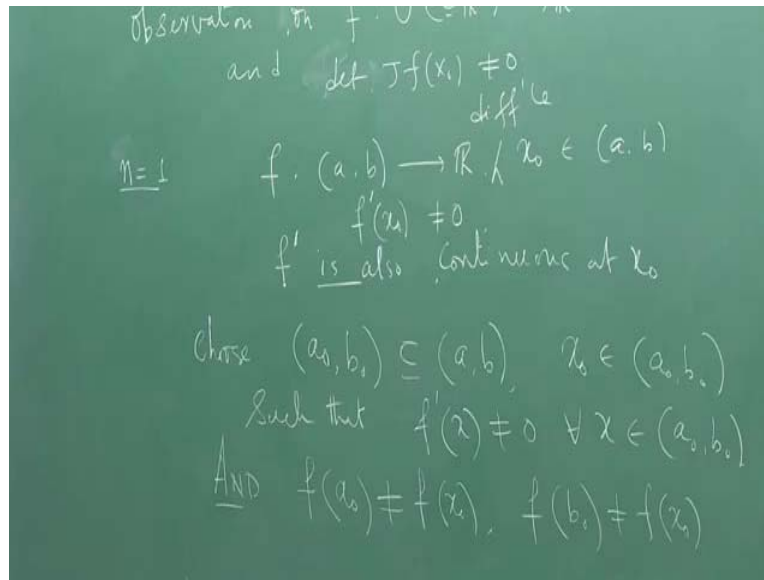 Observation on f : U (⊆ ℝ
and det Jf(x₀) ≠ 0
diff'le
n = 1 f : (a, b) → ℝ & x₀ ∈ (a, b)
f'(x₀) ≠ 0
f' is also continuous at x₀
Choose (a₀, b₀) ⊆ (a, b), x₀ ∈ (a₀, b₀)
Such that f'(x) ≠ 0 ∀ x ∈ (a₀, b₀)
AND f(a₀) ≠ f(x₀), f(b₀) ≠ f(x₀)